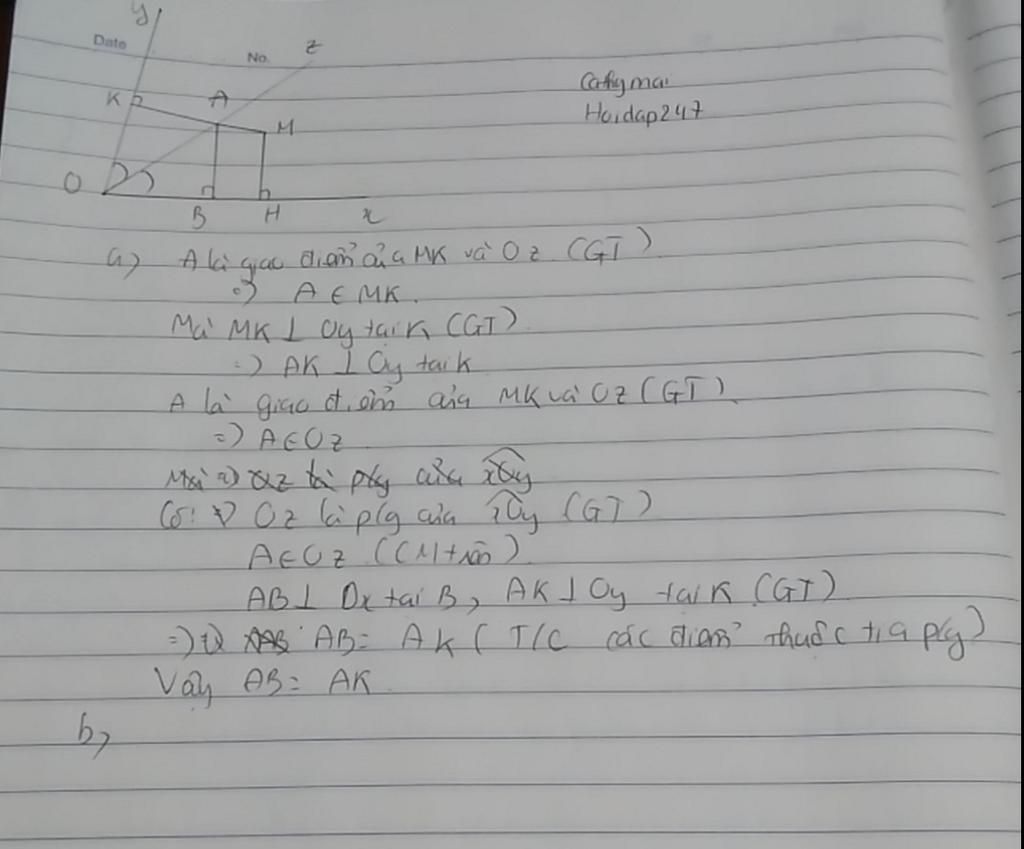 y
Date
No.
z
Cathymai
Hoidap247
K
A
M
O
B
H
x
a) A là giao điểm của MK và Oz (GT)
=) A ∈ MK.
Mà MK ⊥ Oy tại K (GT)
=) AK ⊥ Oy tại K
A là giao điểm của MK và Oz (GT)
=) A ∈ Oz
Oz là p/g của xOy
Có: Oz là p/g của xOy (GT)
A ∈ Oz (CM trên)
AB ⊥ Ox tại B, AK ⊥ Oy tại K (GT)
=) AB = AK ( T/C các điểm thuộc tia p/g)
Vậy AB = AK
b,